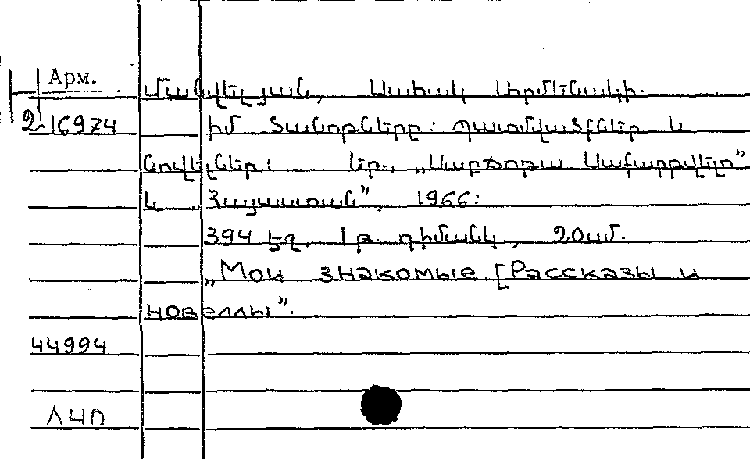 Арм.
2-16974
Մանվելյան, Սահակ Արմենակի.
Իմ ծանոթները: Պատմվածքներ և
նովելներ: Եր.,
և „Հայաստան”, 1966:
394 էջ, 1 թ. դիմանկ, 20սմ.
„Мои знакомые [Рассказы и
новеллы”.
44994
ЛЧП